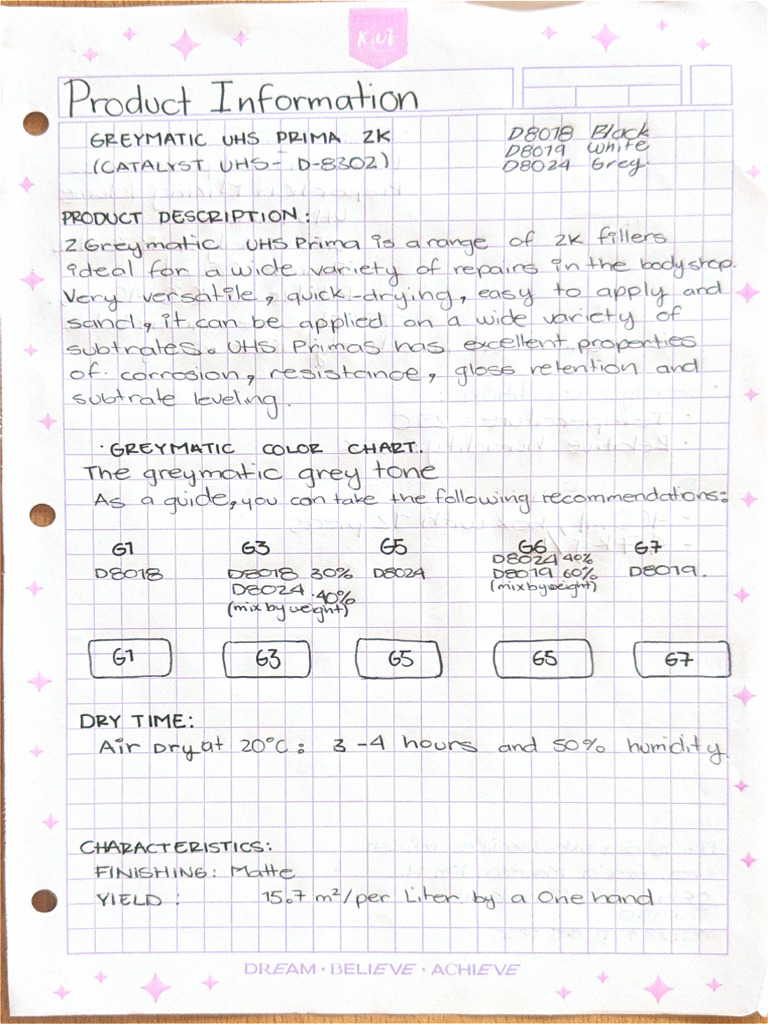 Product Information
GREYMATIC UHS PRIMA 2K
(CATALYST UHS- D-8302)
D8018 Black
D8019 White
D8024 Grey.
PRODUCT DESCRIPTION:
2 Greymatic UHS Prima is a range of 2K fillers
ideal for a wide variety of repairs in the bodyshop.
Very versatile, quick-drying, easy to apply and
sand, it can be applied on a wide variety of
subtrates. UHS Primas has excellent properties
of corrosion, resistance, gloss retention and
subtrate leveling.
· GREYMATIC COLOR CHART.
The greymatic grey tone
As a guide, you can take the following recommendations:
G1 G3 G5 G6 G7
D8018 D8018 30% D8024 D8024 40% D8019.
D8024 · 40% D8019 60%
(mix by weight) (mix by weight)
G1 G3 G5 G5 G7
DRY TIME:
Air Dry at 20°C: 3-4 hours and 50% humidity.
CHARACTERISTICS:
FINISHING: Matte
YIELD : 15.7 m²/per Liter by a One hand
DREAM · BELIEVE · ACHIEVE